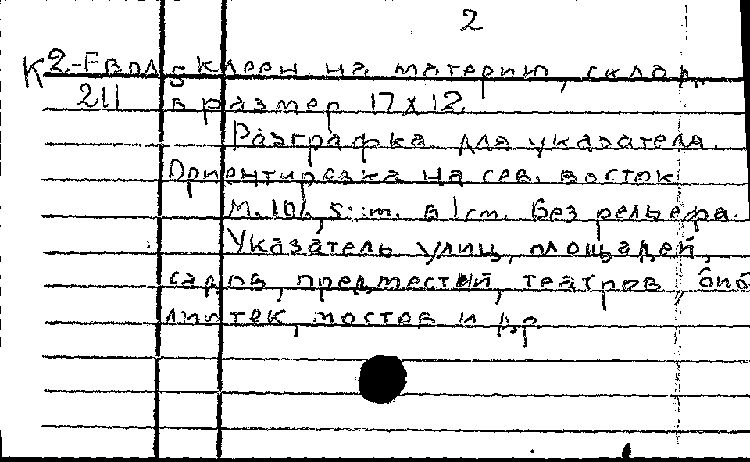 2
К 2-Евпл клеен на материю, склад.
211 5
в размер 17х12
Разграфка для указателя.
Ориентировка на сев. восток
М. 10, 5 m. в 1 cm. Без рельефа.
Указатель улиц, площадей,
садов, предместий, театров, биб
лиотек, мостов и др